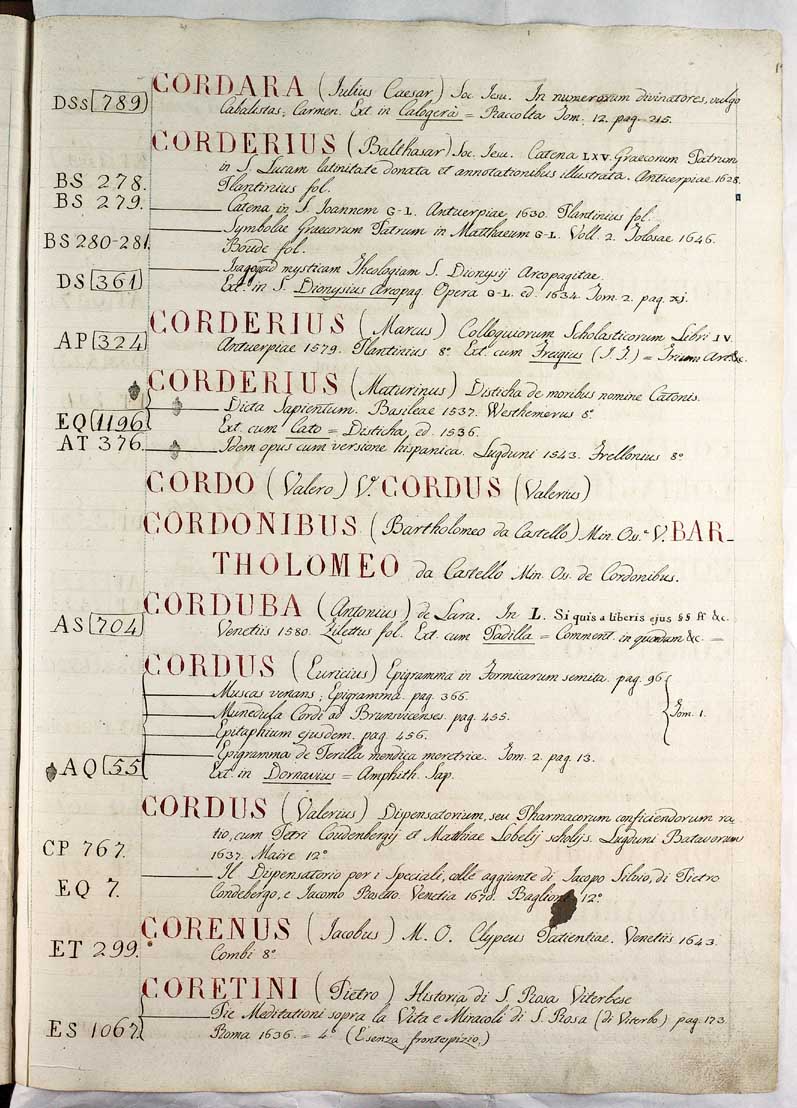 CORDARA (Iulius Caesar) Soc. Iesu. In numerorum divinatores, vulgo
DSS 789 Cabalistas; Carmen. Ext. in Calogerà = Raccolta Tom. 12. pag. 215.
CORDERIUS (Balthasar) Soc. Iesu. Catena LXV. Graecorum Patrum
in S. Lucam latinitate donata et annotationibus illustrata. Antuerpiae 1628.
BS 278. Plantinius fol.
BS 279. Catena in S. Ioannem G-L. Antuerpiae, 1630. Plantinius fol.
Symbolae Graecorum Patrum in Matthaeum G-L. Voll. 2. Tolosae 1646.
BS 280-281. Boude fol.
Isagoge ad mysticam Theologiam S. Dionysij Areopagitae.
DS 361 Ext. in S. Dionysius Areopag. Opera G-L. ed. 1634. Tom. 2. pag. xj.
CORDERIUS (Marcus) Colloquiorum Scholasticorum Libri IV.
AP 324 Antuerpiae 1579. Plantinius 8º Ext. cum Freigius (I. T.) = Trium Art. &c.
CORDERIUS (Maturinus) Disticha de moribus nomine Catonis.
Dicta Sapientum. Basileae 1537. Westhemerus 8º
EQ 1196 Ext. cum Cato = Disticha, ed. 1536.
AT 376. Idem opus cum versione hispanica. Lugduni 1543. Frellonius 8º
CORDO (Valero) V. CORDUS (Valerius)
CORDONIBUS (Bartholomeo da Castello) Min. Oss. V. BAR-
THOLOMEO da Castello Min. Oss. de Cordonibus.
CORDUBA (Antonius) de Lara. In L. Si quis a liberis ejus §§ ff &c.
AS 704 Venetiis 1580. Zilettus fol. Ext. cum Padilla = Comment. in quaedam &c.
CORDUS (Euricius) Epigramma in Formicarum semita. pag. 96
Muscas venans; Epigramma. pag. 366.
Munedula Cordi ad Brunsvicenses. pag. 455. Tom. 1.
Epitaphium ejusdem. pag. 456.
Epigramma de Terilla mendica meretrice. Tom. 2. pag. 13.
AQ 55 Ext. in Dornavius = Amphith. Sap.
CORDUS (Valerius) Dispensatorium, seu Pharmacorum conficiendorum ra-
tio, cum Petri Coudenbergij et Matthiae Lobelij scholijs. Lugduni Batavorum
CP 767. 1637. Maire 12º
Il Dispensatorio per i Speciali, colle aggiunte di Jacopo Silvio, di Pietro
EQ 7. Condebergo, e Jacomo Roseto. Venetia 1670. Baglioni 12º
CORENUS (Jacobus) M. O. Clypeus Patientiae. Venetiis 1643.
ET 299. Combi 8º
CORETINI (Pietro) Historia di S. Rosa Viterbese
Pie Meditationi sopra la Vita e Miracoli di S. Rosa (di Viterbo) pag. 173.
ES 1067 Roma 1636. = 4º (E senza frontespizio.)